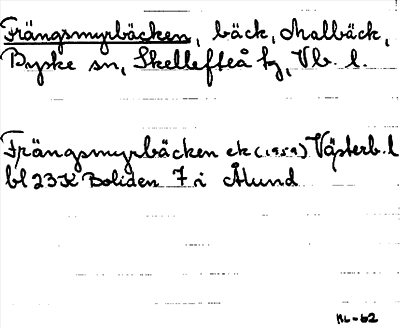 Frängsmyrbäcken, bäck, Malbäck,
Byske sn, Skellefteå tg, Vb. l.
Frängsmyrbäcken ek (1959) Västerb. l
bl 23K Boliden 7 i Ålund
NL-62